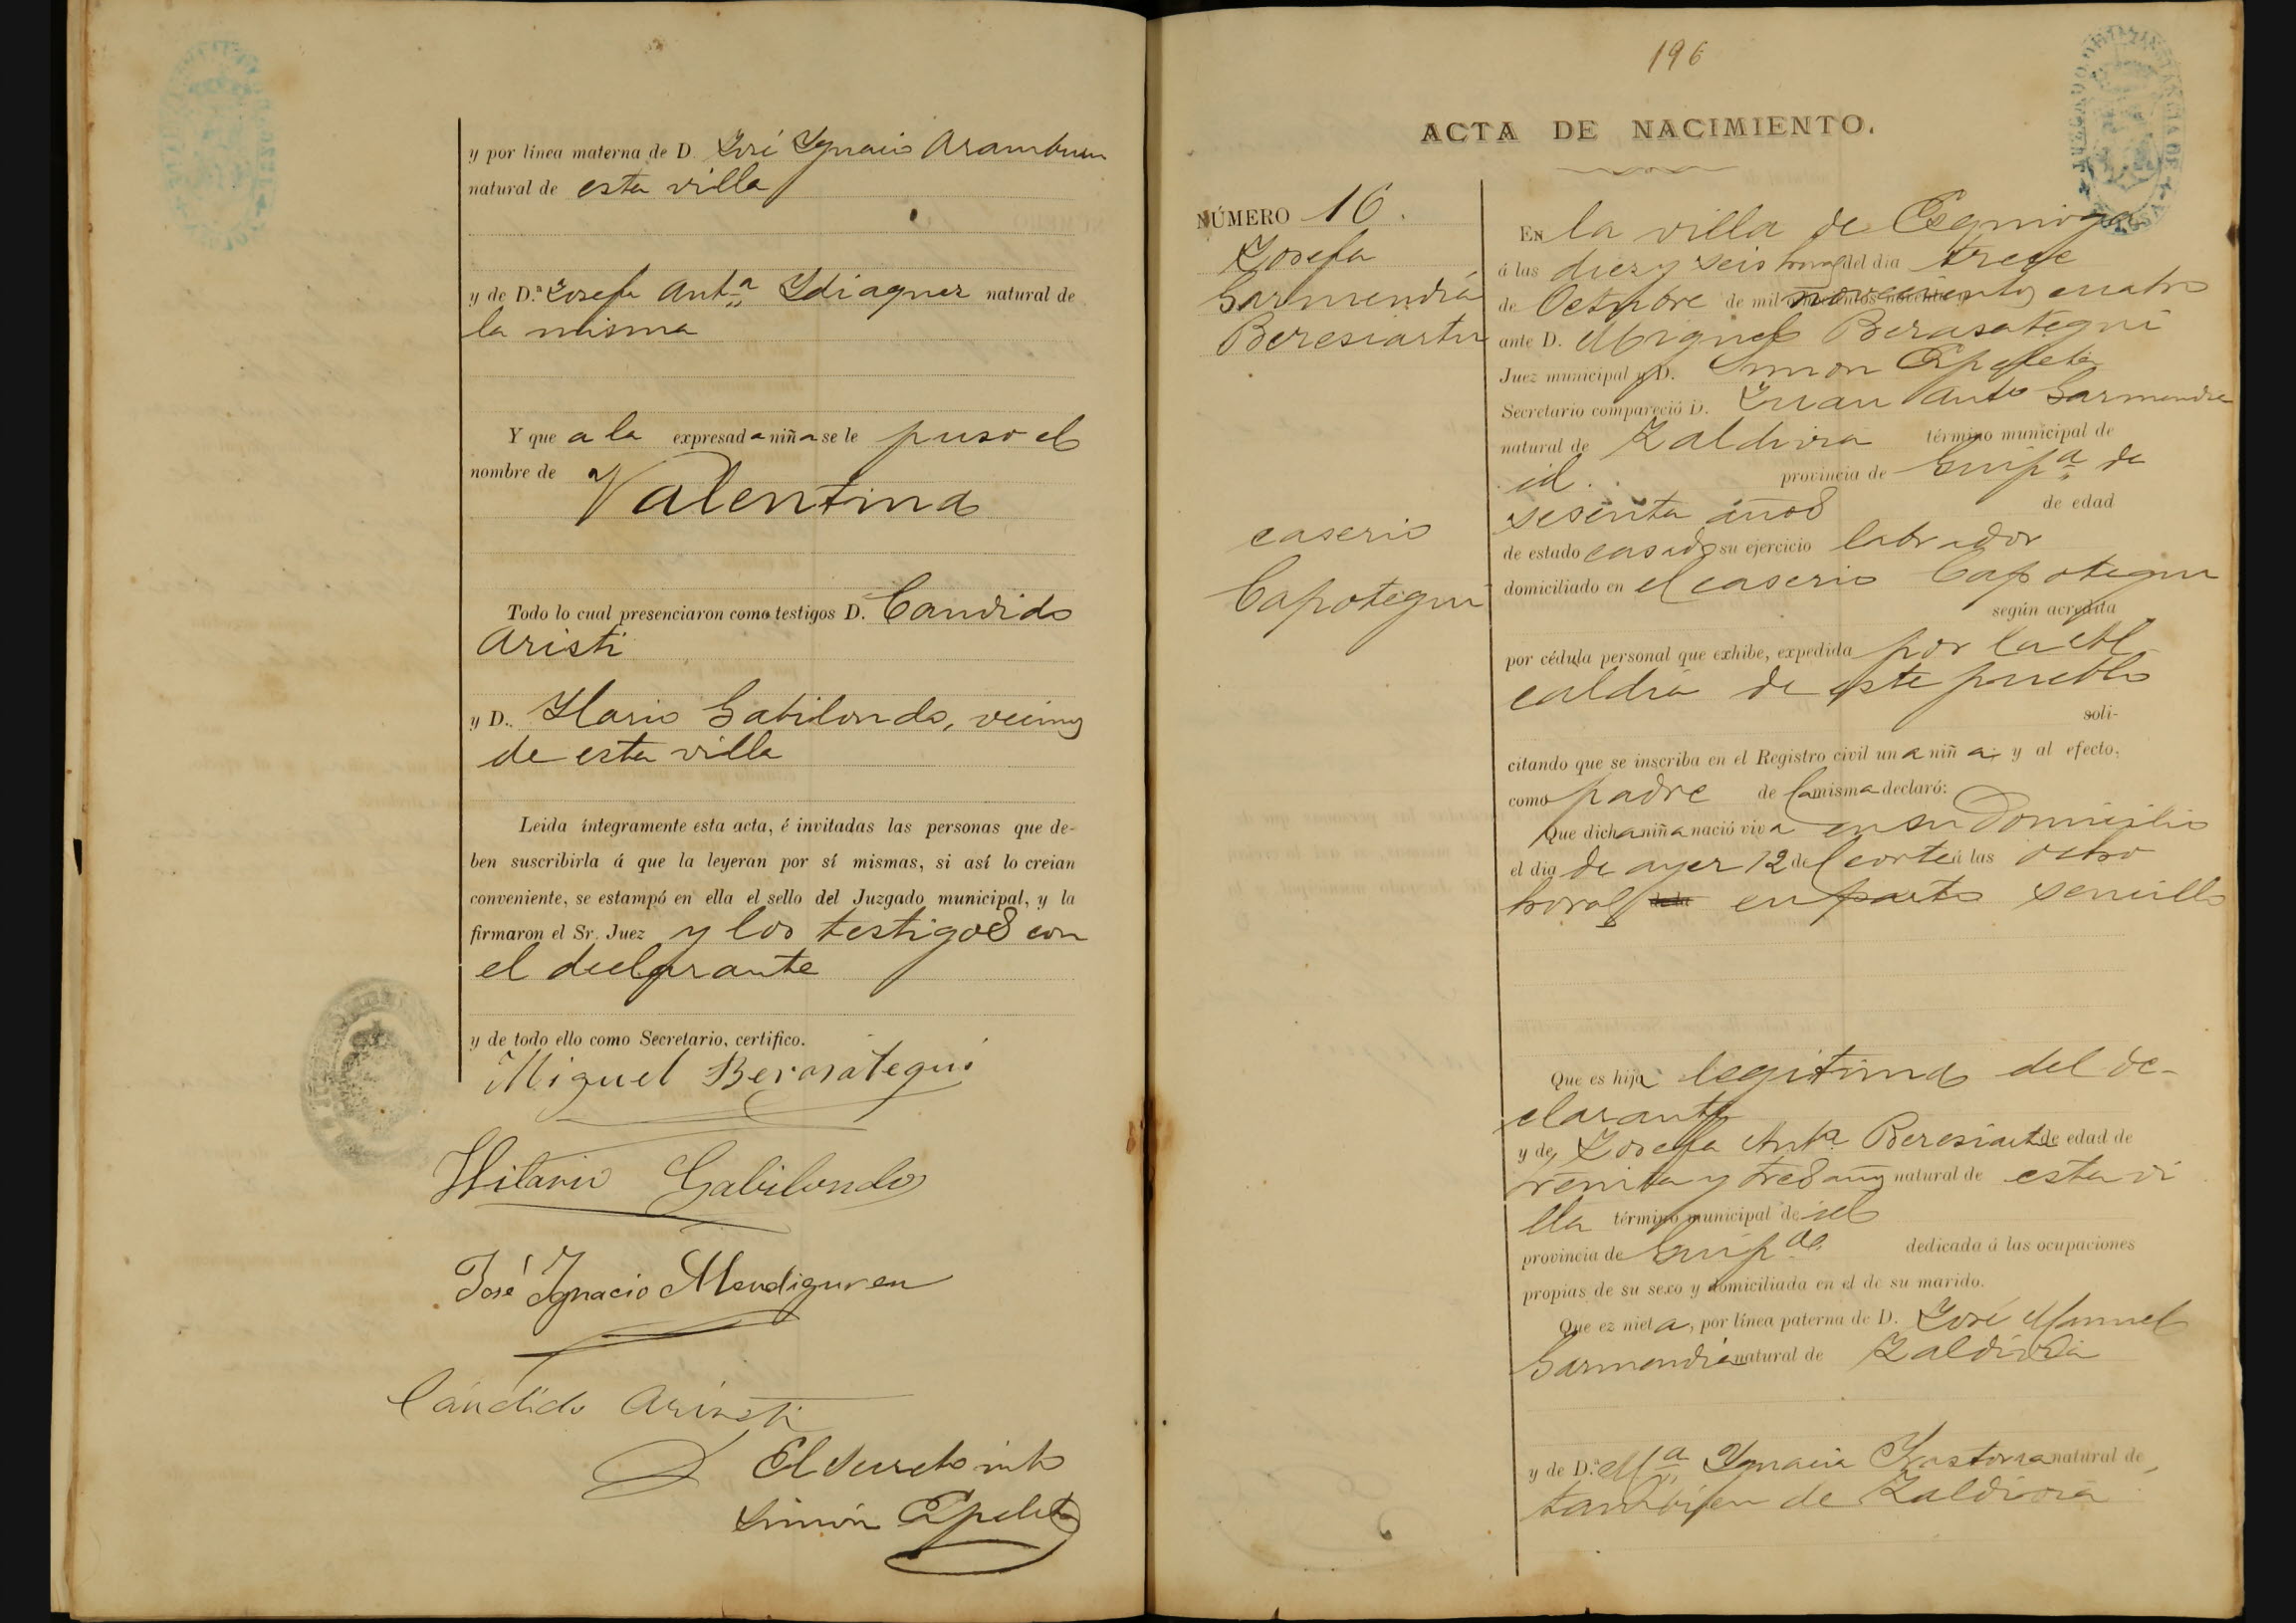 y por línea materna de D. José Ygnacio Aramburu
natural de esta villa
y de D.ª Josefa Ant.ª Ydiaquez natural de
la misma
Y que a la expresada niña se le puso el
nombre de Valentina
Todo lo cual presenciaron como testigos D. Candido
Aristi
y D. Ilario Gabilondo, vecinos
de esta villa
Leida íntegramente esta acta, é invitadas las personas que de-
ben suscribirla á que la leyeran por sí mismas, si así lo creian
conveniente, se estampó en ella el sello del Juzgado municipal, y la
firmaron el Sr. Juez y los testigos con
el declarante
y de todo ello como Secretario, certifico.
Miguel Berasategui
Hilario Gabilondo
José Ignacio Mendiguren
Cándido Aristi
El Secretario
Simón Apeleta
196
ACTA DE NACIMIENTO.
NÚMERO 16.
Josefa
Garmendia
Beresiartu
caserio
Capotegui
En la villa de Ezquioga
á las diez y seis horas del dia trece
de Octubre de mil novecientos cuatro
ante D. Miguel Berasategui
Juez municipal y D. Simon Apeleta
Secretario compareció D. Juan Anto Garmendia
natural de Zaldivia término municipal de
id. provincia de Guip.ª de
sesenta años de edad
de estado casado su ejercicio labrador
domiciliado en el caserio Capotegui
según acredita
por cédula personal que exhibe, expedida por la Al
caldia de este pueblo
soli-
citando que se inscriba en el Registro civil una niña; y al efecto,
como padre de la misma declaró:
Que dicha niña nació viva en su domicilio
el dia de ayer 12 del corte á las ocho
horas en parto sencillo
Que es hija legitima del de-
clarante
y de Josefa Ant.ª Beresiartu de edad de
treinta y tres años natural de esta vi
lla término municipal de id
provincia de Guip.ª dedicada á las ocupaciones
propias de su sexo y domiciliada en el de su marido.
Que ez nieta, por línea paterna de D. José Manuel
Garmendia natural de Zaldivia
y de D.ª M.ª Ygnacia natural de
tambien de Zaldivia